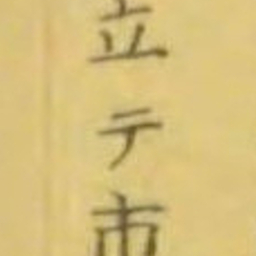 立テ市